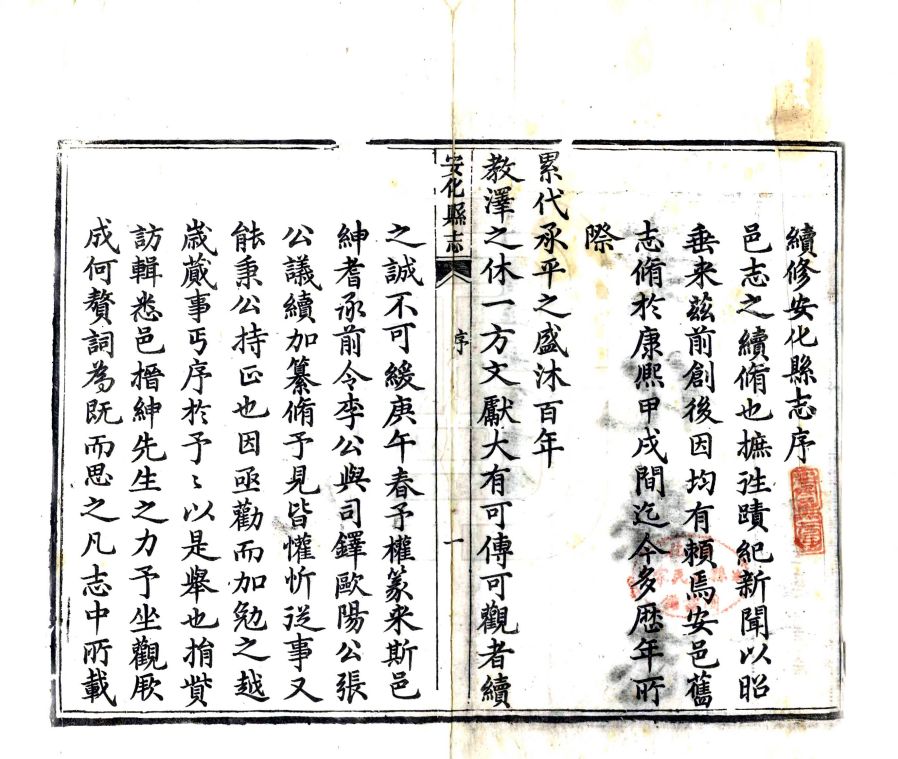 續修安化縣志序
邑志之續脩也摭徃蹟紀新聞以昭
垂来兹前創後因均有賴焉安邑舊
志脩於康熙甲戌間迄今多歴年所
際
累代承平之盛沐百年
教澤之休一方文獻大有可傳可觀者續
安化縣志
序
一
之誠不可緩庚午春予權篆来斯邑
紳耆承前令李公與司鐸歐陽公張
公議續加纂脩予見皆懽忻從事又
能秉公持正也因亟勸而加勉之越
歳蕆事丐序於予〻以是舉也捐貲
訪輯悉邑搢紳先生之力予坐觀厥
成何贅詞為既而思之凡志中所載